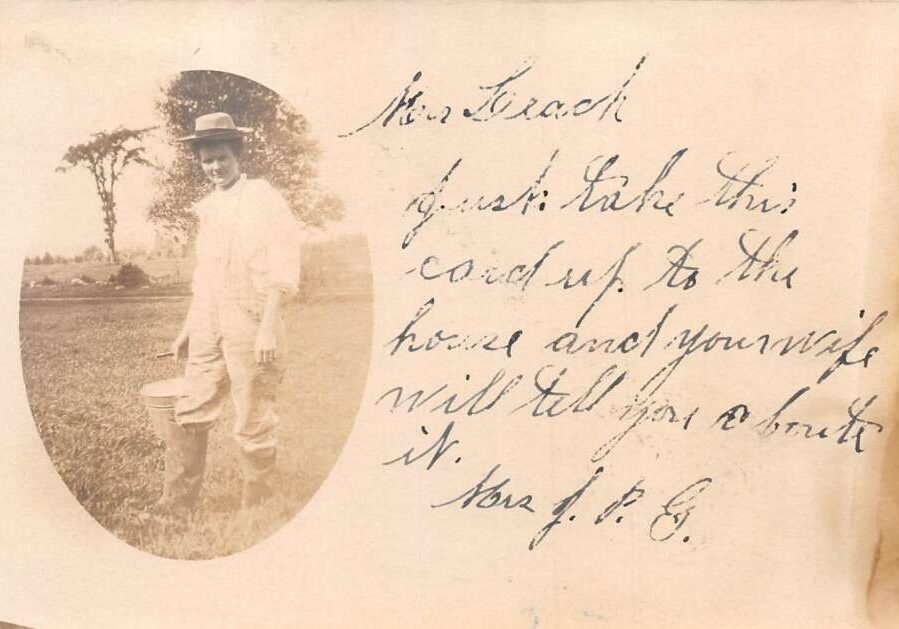 Mr Leach
Just take this
card up to the
house and your wife
will tell you aboute
it.
Mrs J. P. G.